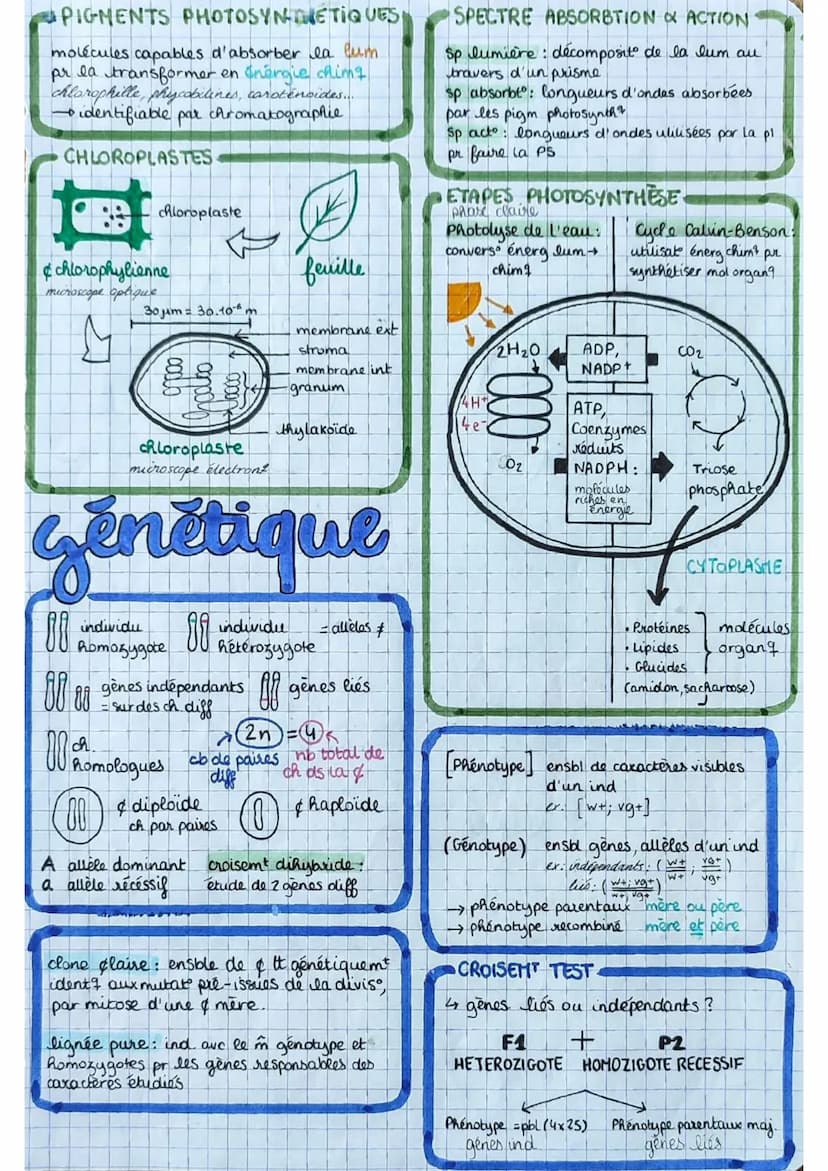 PIGMENTS PHOTOSYNTHÉTIQUES
molécules capables d'absorber la lum
pr la transformer en énergie chimq
chlorophille, phycobilines, caroténoides...
→ identifiable par chromatographie
CHLOROPLASTES
chloroplaste
¢ chlorophylienne
microscope optique
feuille
30 µm = 30.10⁻⁶ m
membrane ext
stroma
membrane int
granum
thylakoïde
chloroplaste
microscope électronq
SPECTRE ABSORBTION & ACTION
sp lumière : décomposit° de la lum au
travers d'un prisme
sp absorbt° : longueurs d'ondes absorbées
par les pigm photosynthq
sp act° : longueurs d'ondes utilisées par la pl
pr faire la PS
ETAPES PHOTOSYNTHÈSE
phase claire
Photolyse de l'eau :
convers° énerg lum →
chimq
Cycle Calvin-Benson :
utilisat° énerg chimq pr
synthétiser mol organq
2H₂O
ADP,
NADP+
CO₂
4H+
4e-
O₂
ATP,
Coenzymes
réduits
NADPH :
molécules
riches en
énergie
Triose
phosphate
CYTOPLASME
• Protéines
• Lipides
• Glucides
(amidon, sacharose)
molécules
organq
génétique
individu
homozygote
individu
hétérozygote
= allèles ≠
gènes indépendants
= sur des ch diff
gènes liés
ch.
homologues
2n = 4
cb de paires
diff
nb total de
ch ds la ¢
¢ diploïde
ch par paires
¢ haploïde
A allèle dominant
a allèle récéssif
croisemt dihybride :
étude de 2 gènes diff
[Phénotype] ensbl de caractères visibles
d'un ind
ex : [w+; vg+]
(Génotype) ensbl gènes, allèles d'un ind
ex : indépendants : (w+/w+ ; vg+/vg+)
liés : (w+; vg+/w+; vg+)
→ phénotype parentaux mère ou père
→ phénotype recombiné mère et père
clone ¢laire : ensble de ¢ tt génétiquemt
identq aux mutat° pré-issues de la divis°,
par mitose d'une ¢ mère.
lignée pure : ind. avc le m̂ génotype et
homozygotes pr les gènes responsables des
caractères étudiés
CROISEMT TEST
↳ gènes liés ou indépendants ?
F1 + P2
HETEROZIGOTE HOMOZIGOTE RECESSIF
Phénotype =pbl (4x25)
gènes ind
Phénotype parentaux maj.
gènes liés